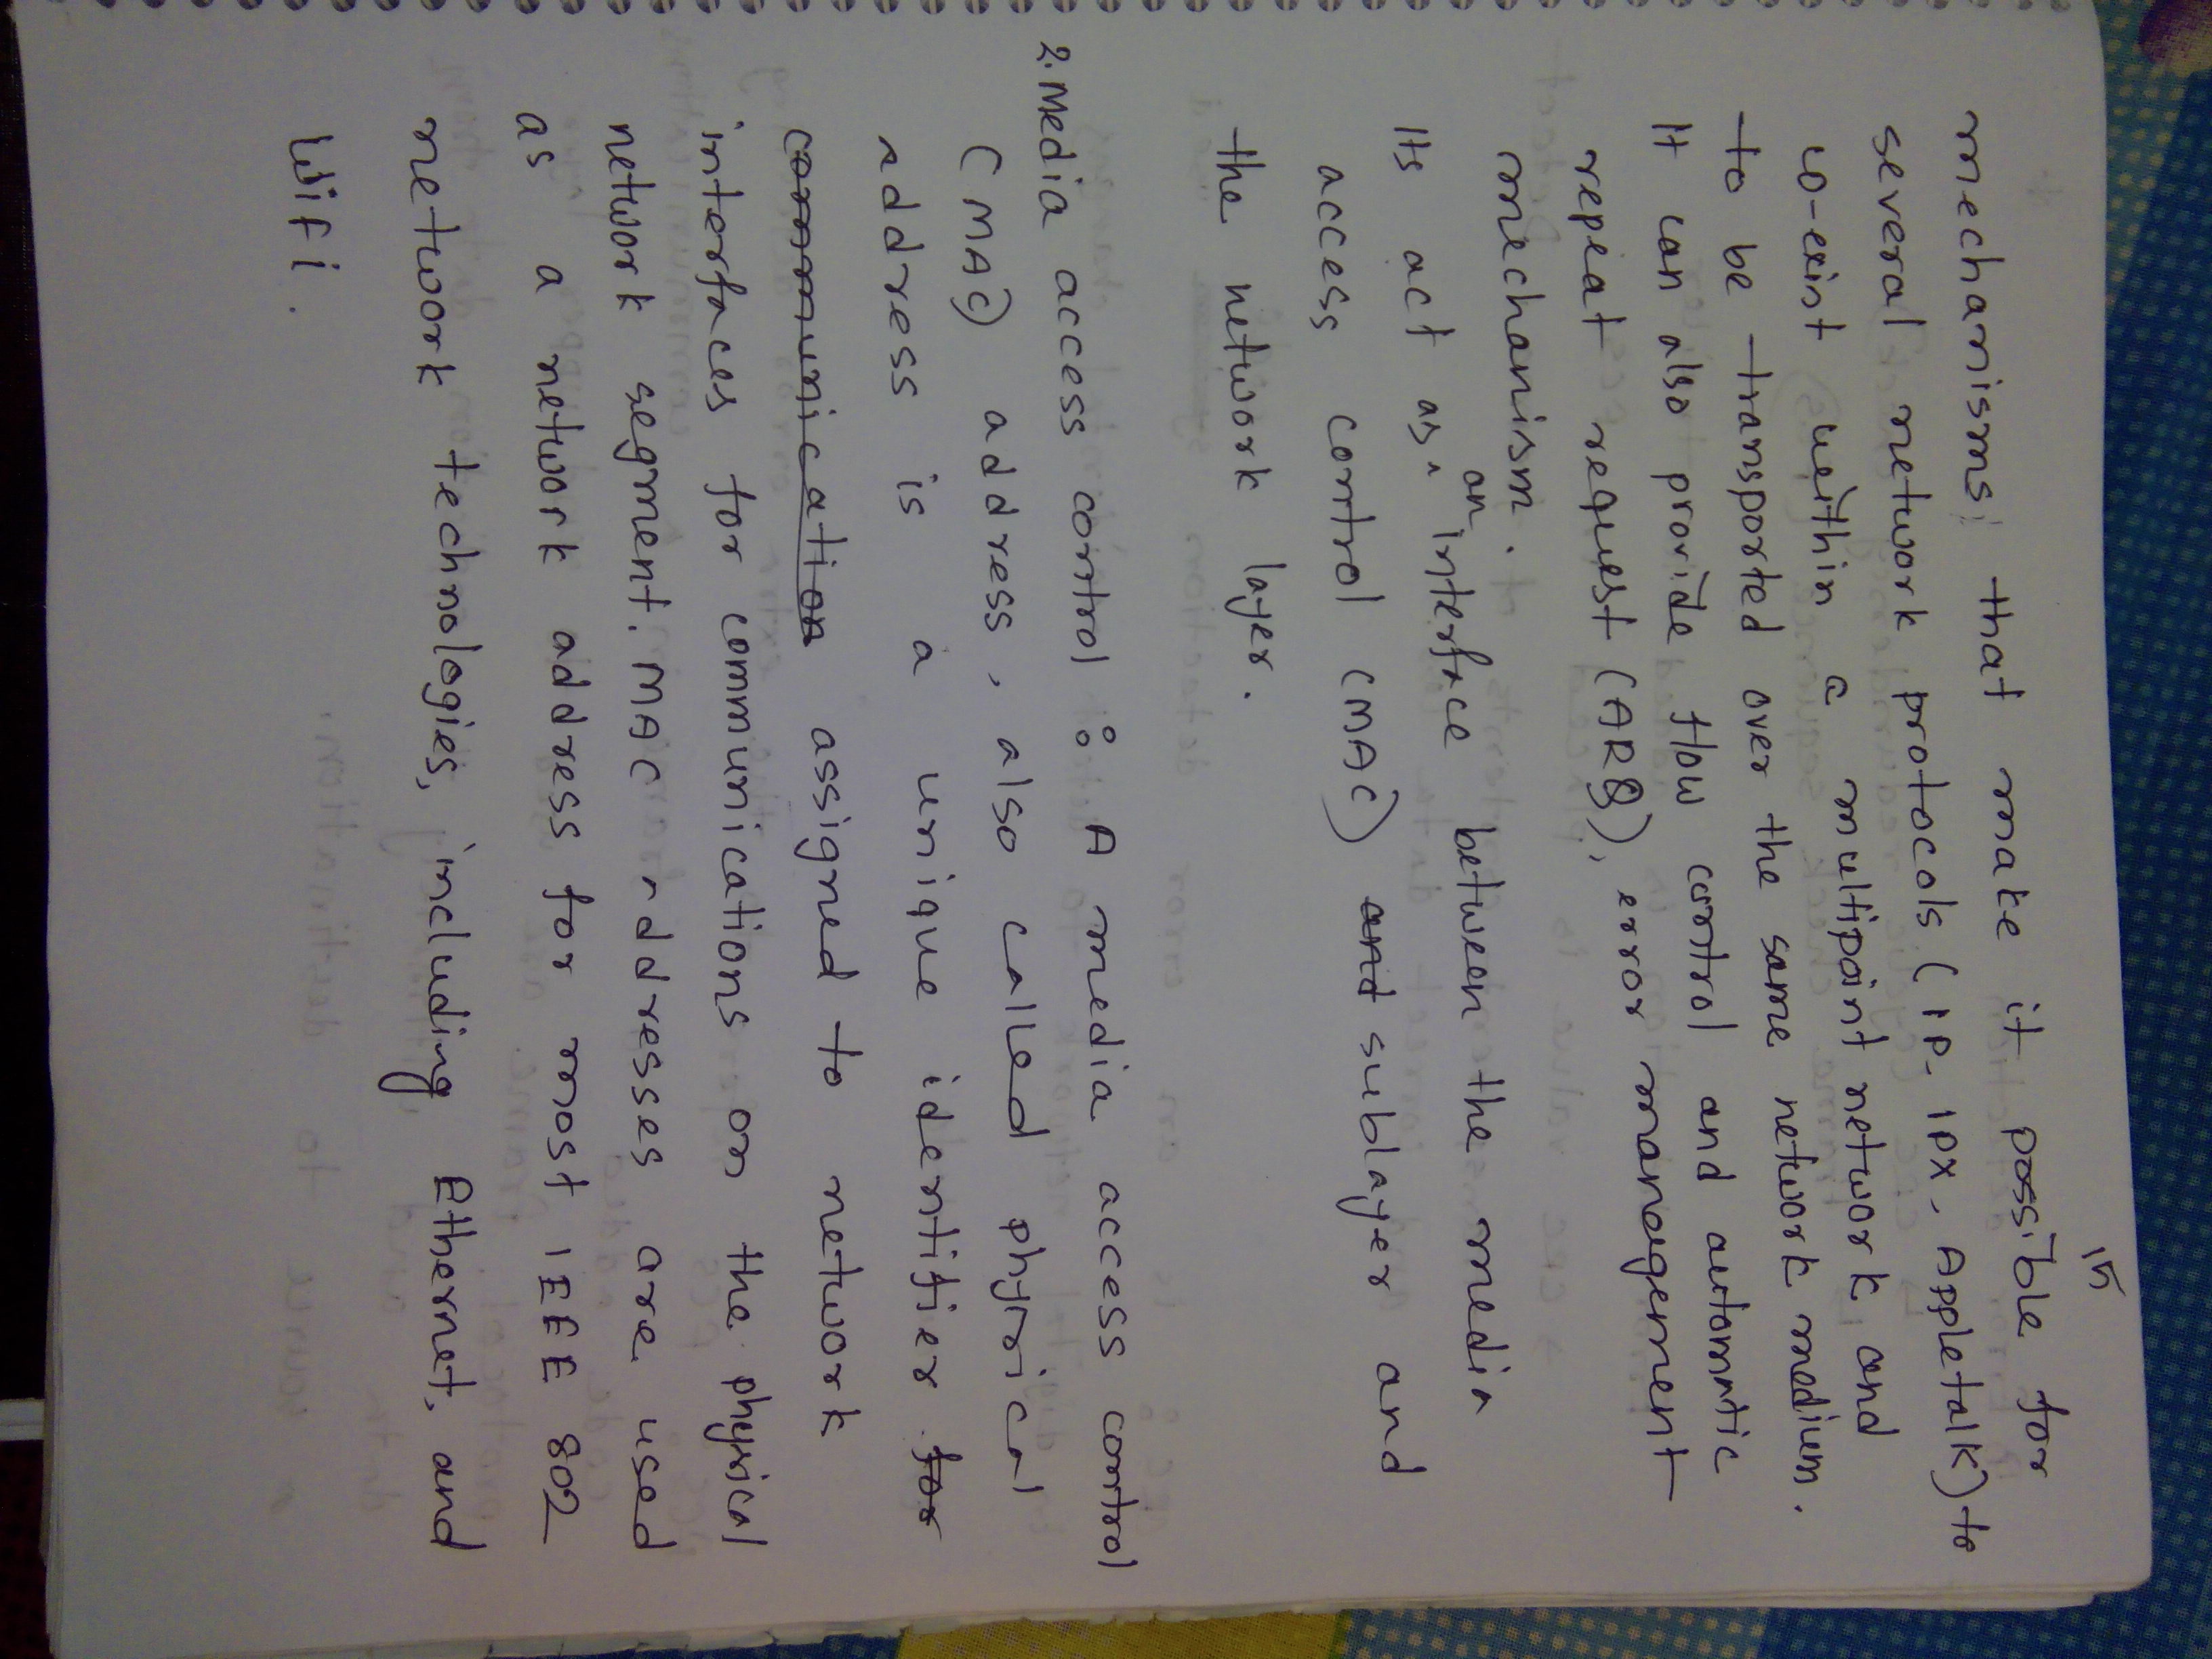 15
mechanisms that make it possible for
several network protocols (IP, IPX, Appletalk) to
co-exist within a multipoint network and
to be transported over the same network medium.
It can also provide flow control and automatic
repeat request (ARQ), error management
mechanism.
Its act as an interface between the media
access control (MAC) and sublayer and
the network layer.
2. Media access control : A media access control
(MAC) address, also called physical
address is a unique identifier for
communication assigned to network
interfaces for communications on the physical
network segment. MAC addresses are used
as a network address for most IEEE 802
network technologies, including Ethernet, and
WiFi.